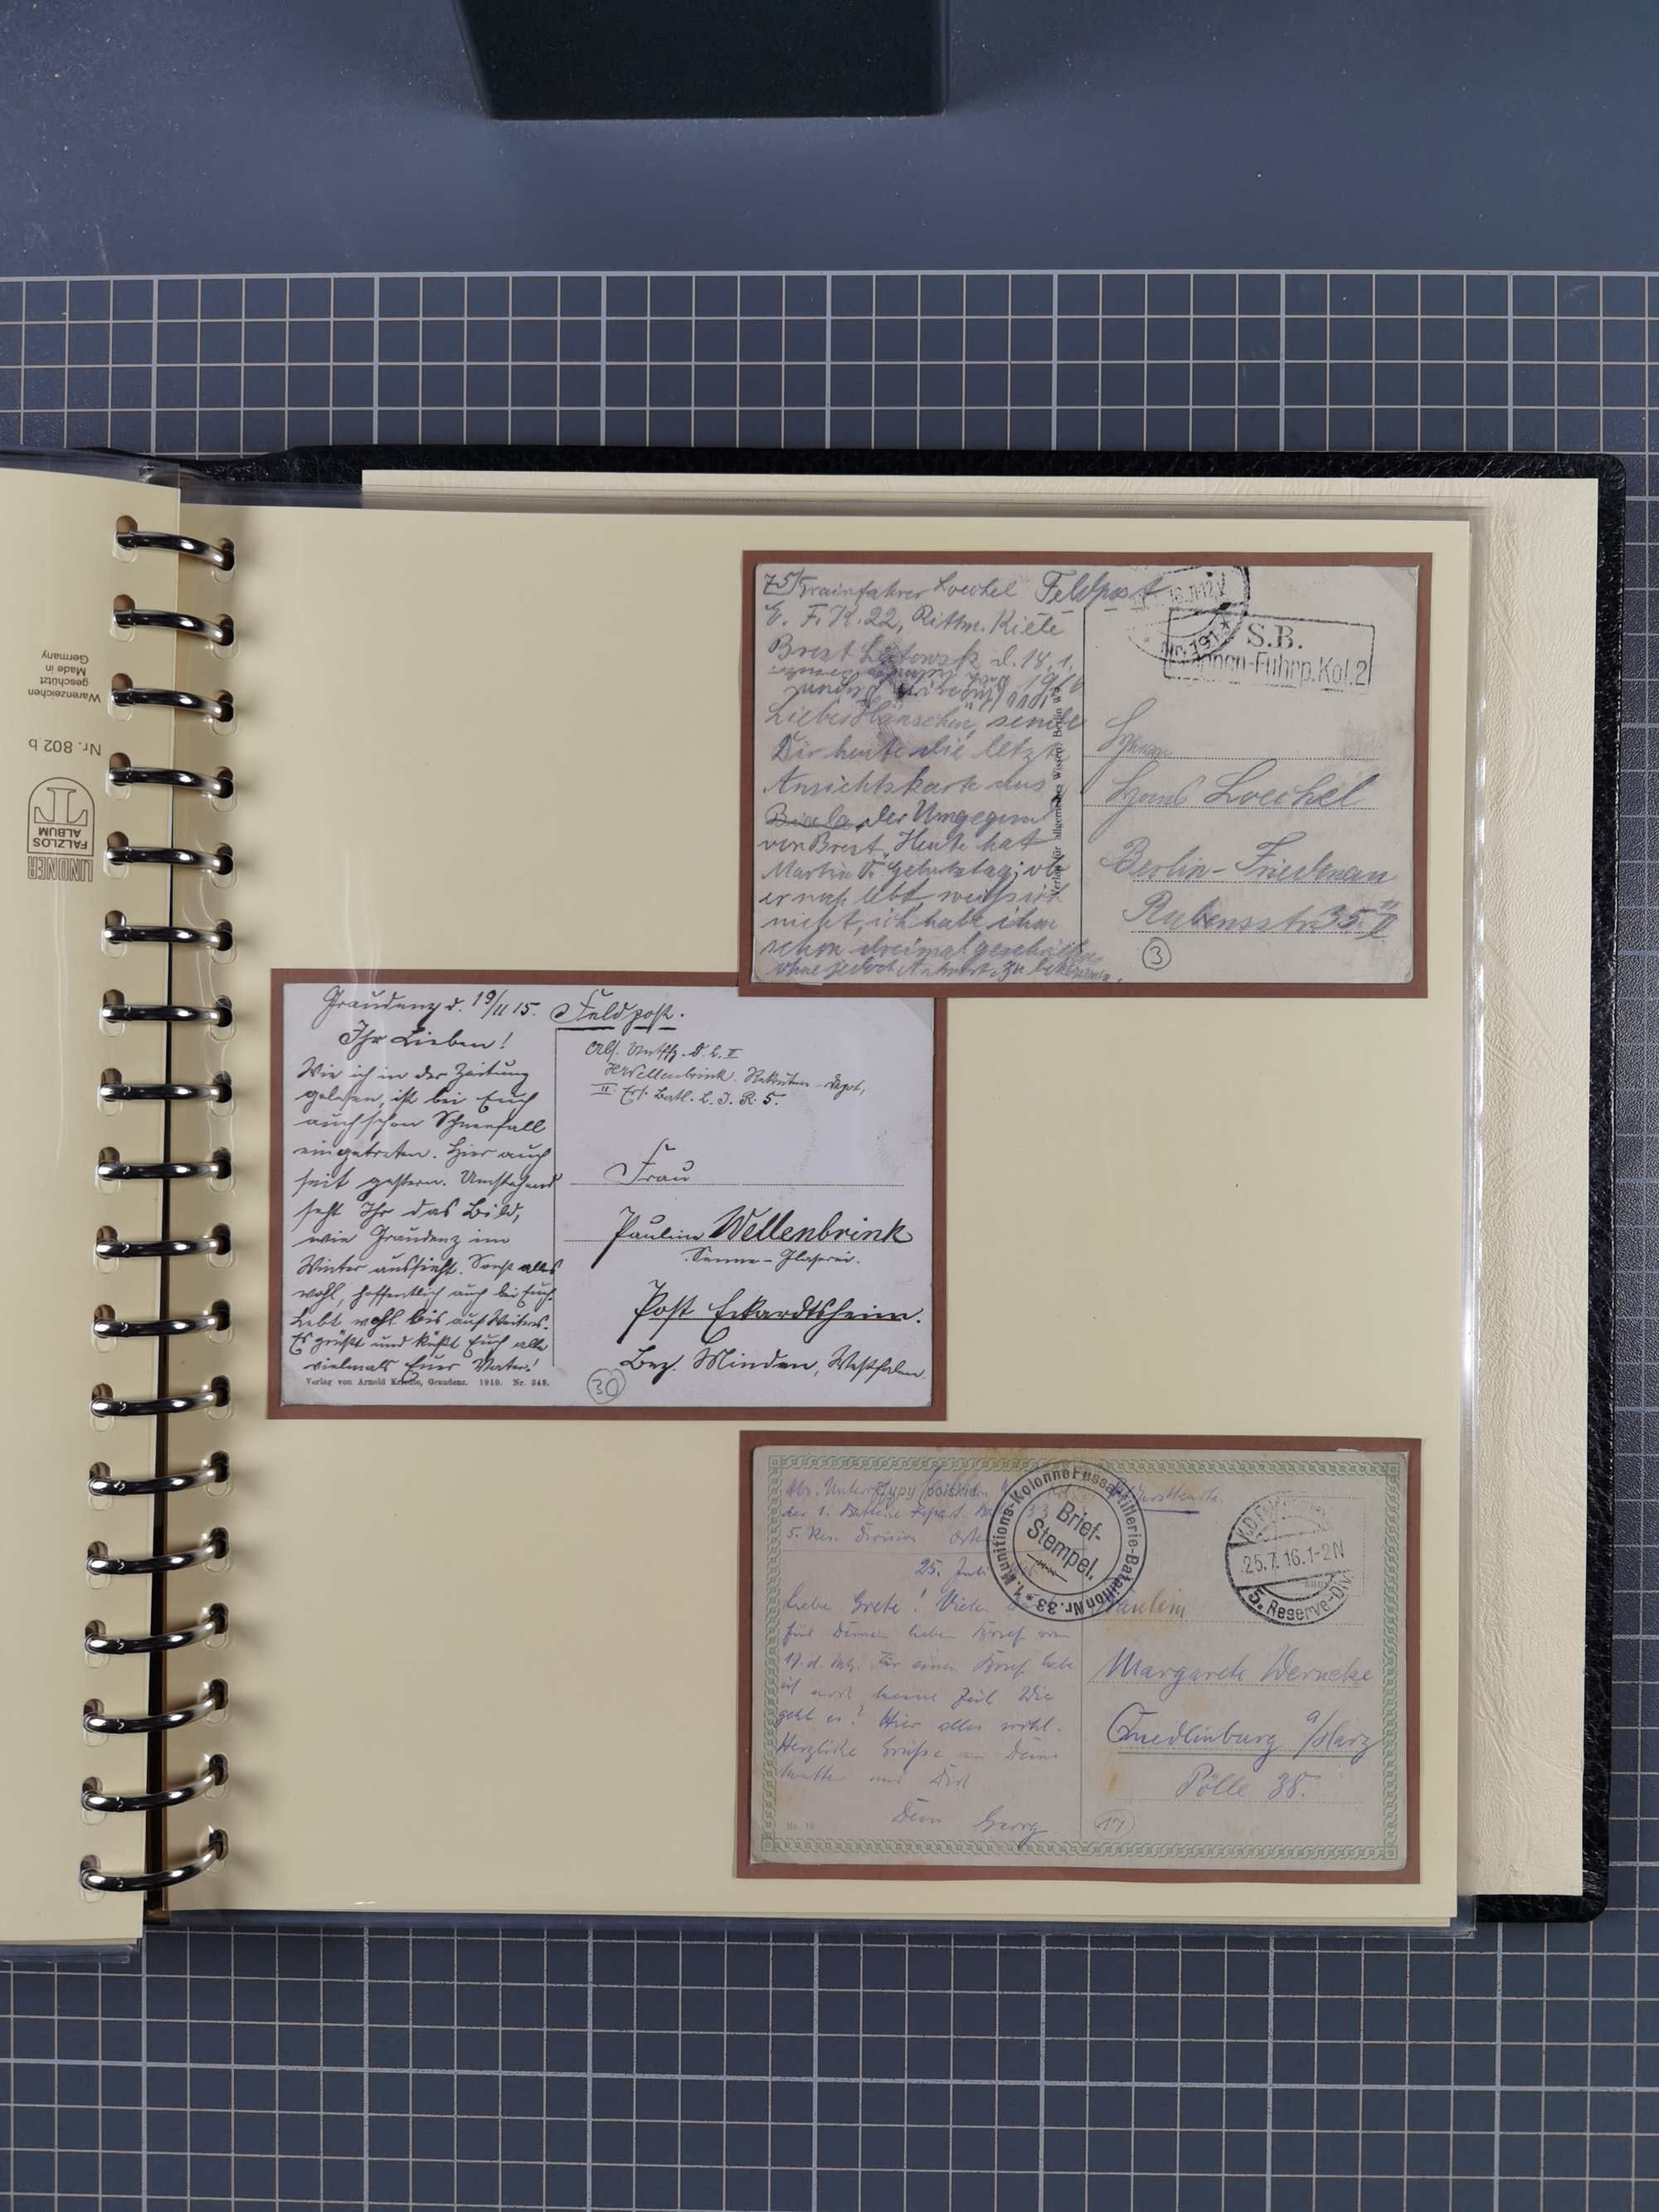 75/Trainfahrer Loechel Feldpost
E. F. K. 22, Rittm. Kiele
Brest Litowsk d. 18.1.
1916
Liebes Hänschen, sende
Dir heute die letzte
Ansichtskarte aus
Biala der Umgegend
von Brest. Heute hat
Martin V. Geburtstag; ob
er noch lebt, weiß ich
nicht, ich habe ihm
schon dreimal geschrieben
ohne jedoch Antwort zu bekommen.
16.11-12V
S.B.
Fuhrp.Kol.2
Verlag für allgemeines Wissen, Berlin W
Hans Loechel
Berlin-Friedenau
Rubensstr. 35 II
3
Graudenz d. 19/11 15. Feldpost.
Ihr Lieben!
Wie ich in der Zeitung
gelesen, ist bei Euch
auch schon Schneefall
eingetreten. Hier auch
seit gestern. Umstehend
seht Ihr das Bild,
wie Graudenz im
Winter aussieht. Sonst alles
wohl, hoffentlich auch bei Euch.
Lebt wohl bis auf Weiteres.
Es grüßt und küßt Euch alle
vielmals Euer Vater!
Verlag von Arnold Kriedte, Graudenz. 1910. Nr. 348.
Abs. Untffz. d. L. II
H. Wellenbrink. Rekruten-Depot,
II. Ers. Batl. L. I. R. 5.
Frau
Pauline Wellenbrink
Senne-Glaserei.
Post Eckardtsheim.
Bez. Minden, Westfalen.
30
Typy polskie
5. Res. Division
25. Juli
Liebe Grete! Vielen
für Deinen lieben Brief vom
17. d. Mts. Für einen Brief habe
ich noch keine Zeit. Wie
geht es? Hier alles wohl.
Herzliche Grüße an Deine
und Dich
Dein Georg
No. 10
1. Munitions-Kolonne Fussartillerie-Bataillon Nr. 33 *
Brief-
Stempel.
K.D.Feldpost
25.7.16.1-2N
5. Reserve-Div.
Fräulein
Margarete Wernecke
Quedlinburg a/Harz
Pölle 38.
17
LINDNER
FALZLOS
ALBUM
T
Nr. 802 b
Warenzeichen
geschützt
Made in
Germany